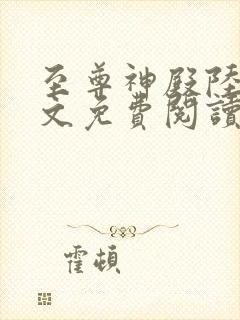 至尊神殿陸
文免費閱讀
霍頓